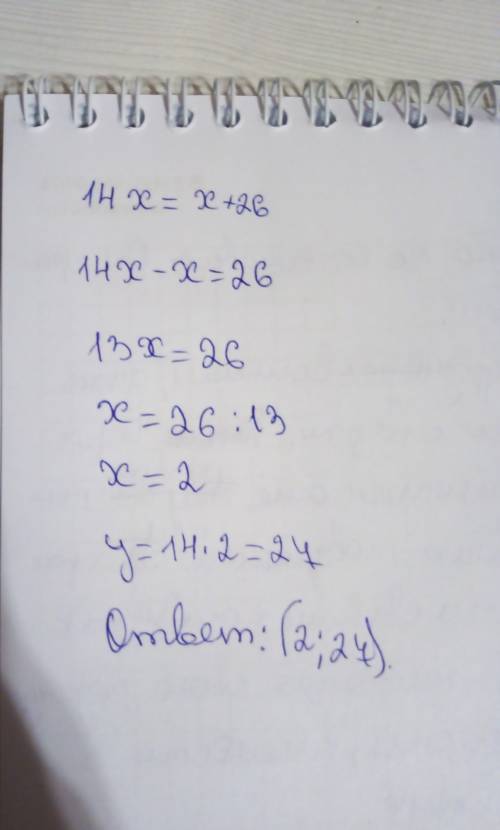 14x = x+26
14x - x = 26
13x = 26
x = 26 : 13
x = 2
y = 14 · 2 = 27
Ответ: (2; 27).